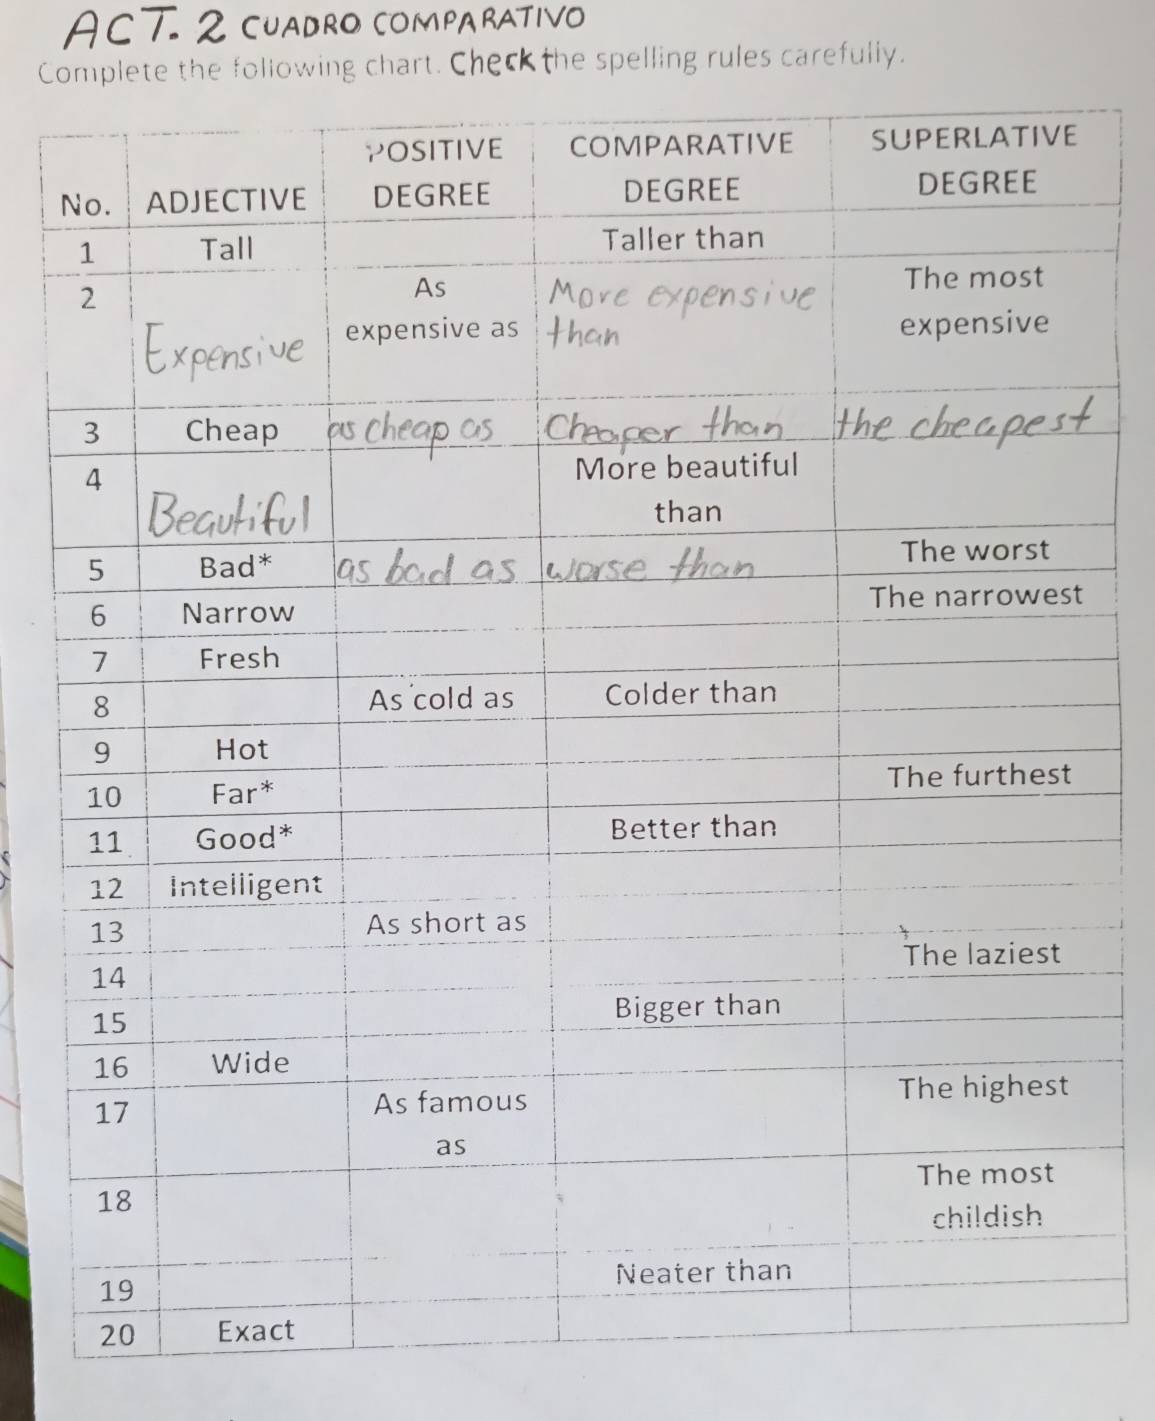 ACT. 2 CUADRO COMPARATIVO
Complete the following chart. Check the spelling rules carefully.
No. ADJECTIVE POSITIVE DEGREE COMPARATIVE DEGREE SUPERLATIVE DEGREE
1 Tall Taller than
2 Expensive As expensive as More expensive than The most expensive
3 Cheap as cheap as Cheaper than the cheapest
4 Beautiful More beautiful than
5 Bad* as bad as worse than The worst
6 Narrow The narrowest
7 Fresh
8 As cold as Colder than
9 Hot
10 Far* The furthest
11 Good* Better than
12 Intelligent
13 As short as
14 The laziest
15 Bigger than
16 Wide
17 As famous as The highest
18 The most childish
19 Neater than
20 Exact